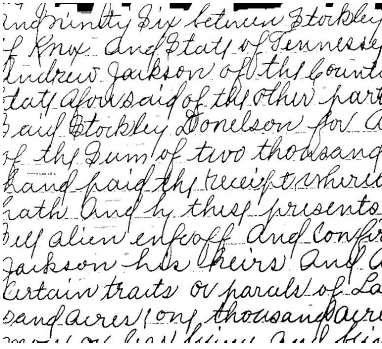 and ninety Six between Stockley
of Knox and State of Tennessee
Andrew Jackson of the Count
State aforesaid of the other part
Said Stockley Donelson for a
of the Sum of two thousand
hand paid the receipt where
hath and by these presents
Sell alien enfeoff and Confir
Jackson his heirs and a
Certain traits or parcels of La
sand acres one thousand acre
more or less being and